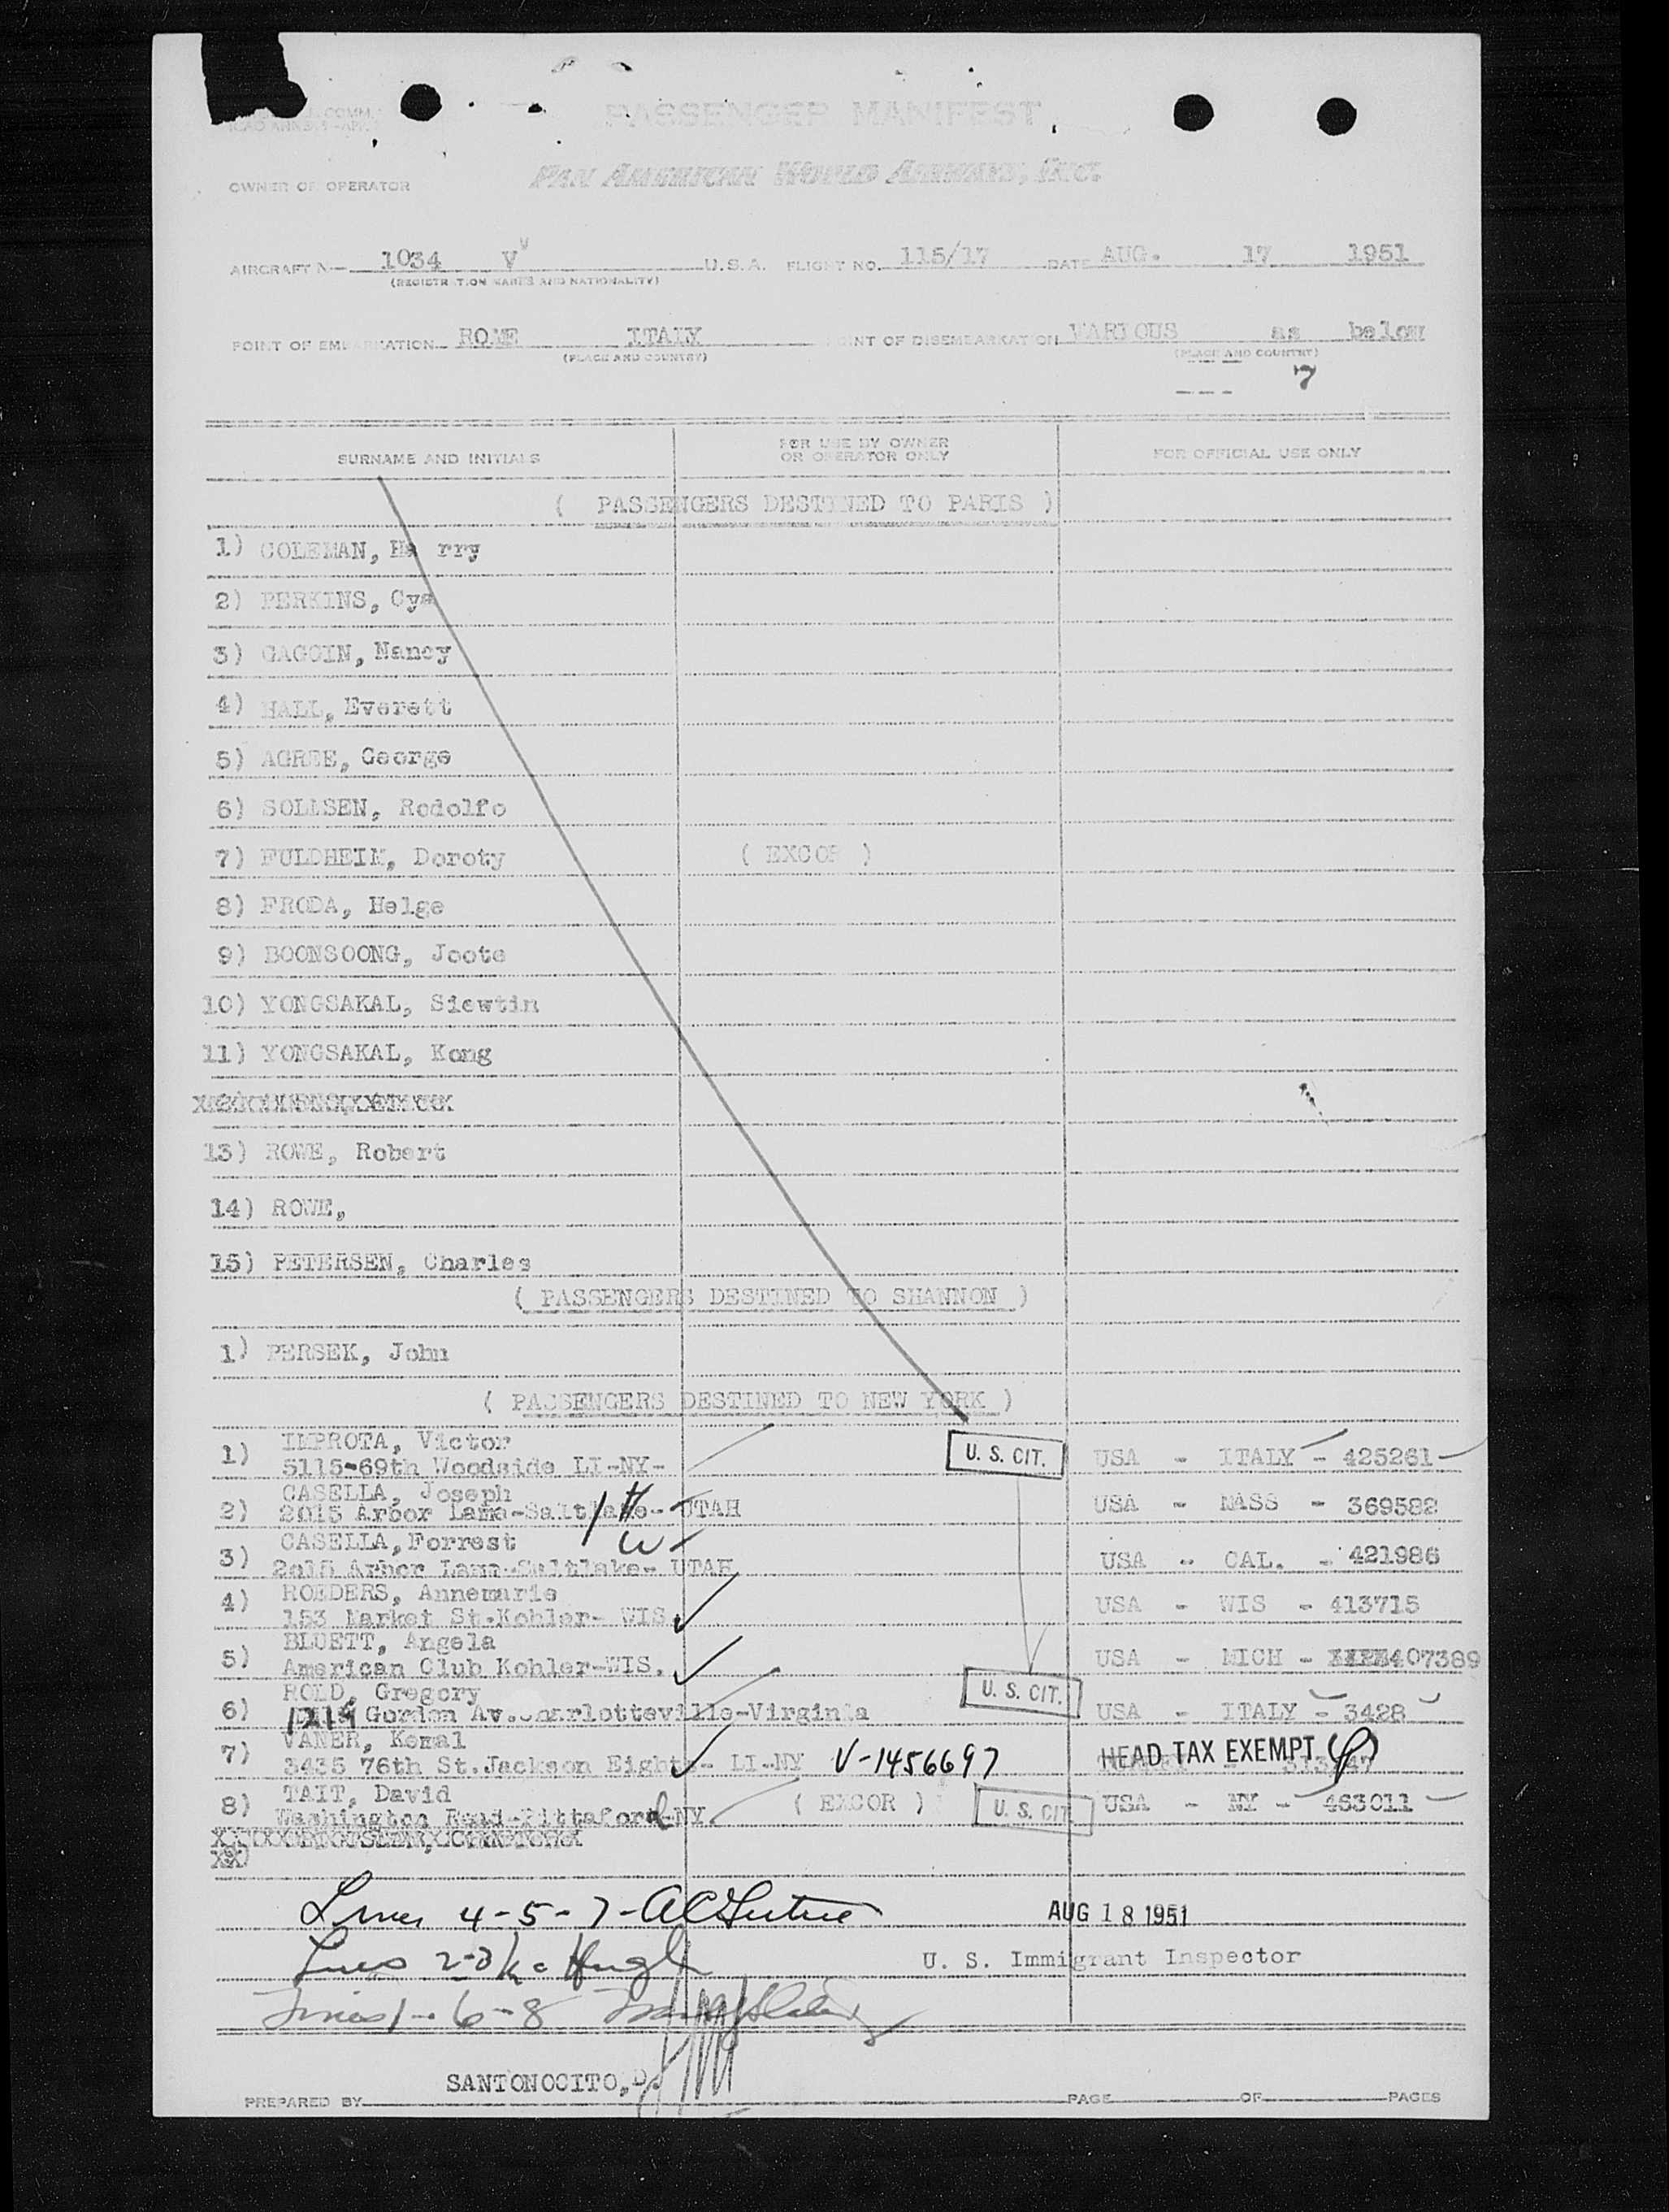 COMM.
PASSENGER MANIFEST
PAN AMERICAN WORLD AIRWAYS, INC.
OWNER OR OPERATOR
AIRCRAFT N— 1034 V U.S.A. FLIGHT NO. 115/17 DATE AUG. 17 1951
(REGISTRATION MARKS AND NATIONALITY)
POINT OF EMBARKATION ROME ITALY POINT OF DISEMBARKATION VARIOUS as below
(PLACE AND COUNTRY) (PLACE AND COUNTRY)
--- 7
SURNAME AND INITIALS FOR USE BY OWNER OR OPERATOR ONLY FOR OFFICIAL USE ONLY
( PASSENGERS DESTINED TO PARIS )
1) COLEMAN, Ha rry
2) PERKINS, Cys
3) GAGOIN, Nancy
4) HALL, Everett
5) AGREE, George
6) SOLLSEN, Rodolfo
7) FULDHEIM, Doroty ( EXCOR )
8) FRODA, Helge
9) BOONSOONG, Joote
10) YONGSAKAL, Siewtin
11) YONGSAKAL, Kong
13) ROWE, Robert
14) ROWE,
15) PETERSEN, Charles
( PASSENGERS DESTINED TO SHANNON )
1) PERSEK, John
( PASSENGERS DESTINED TO NEW YORK )
1) IMPROTA, Victor
5115-69th Woodside LI-NY- U. S. CIT. USA - ITALY - 425261
2) CASELLA, Joseph
2015 Arbor Lane-Saltlake--UTAH USA - MASS - 369582
3) CASELLA, Forrest W
2015 Arbor Lane-Saltlake- UTAH USA - CAL. - 421986
4) ROEDERS, Annemarie
153 Market St.Kohler- WIS. USA - WIS - 413715
5) BLUETT, Angela
American Club Kohler-WIS. USA - MICH - 407389
6) ROLD, Gregory U. S. CIT.
1219 Gordon Av.Charlotteville-Virginia USA - ITALY - 3428
7) VANER, Kemal
3435 76th St.Jackson Eights- LI-NY V-1456697 HEAD TAX EXEMPT
8) TAIT, David ( EXCOR ) U. S. CIT. USA - NY - 463011
Washington Road-Pittsford-NY.
Lines 4-5-7-
AUG 18 1951
Lines 2-3 Mc Hugh
U. S. Immigrant Inspector
Lines 1-6-8
SANTONOCITO, D.
PREPARED BY PAGE OF PAGES